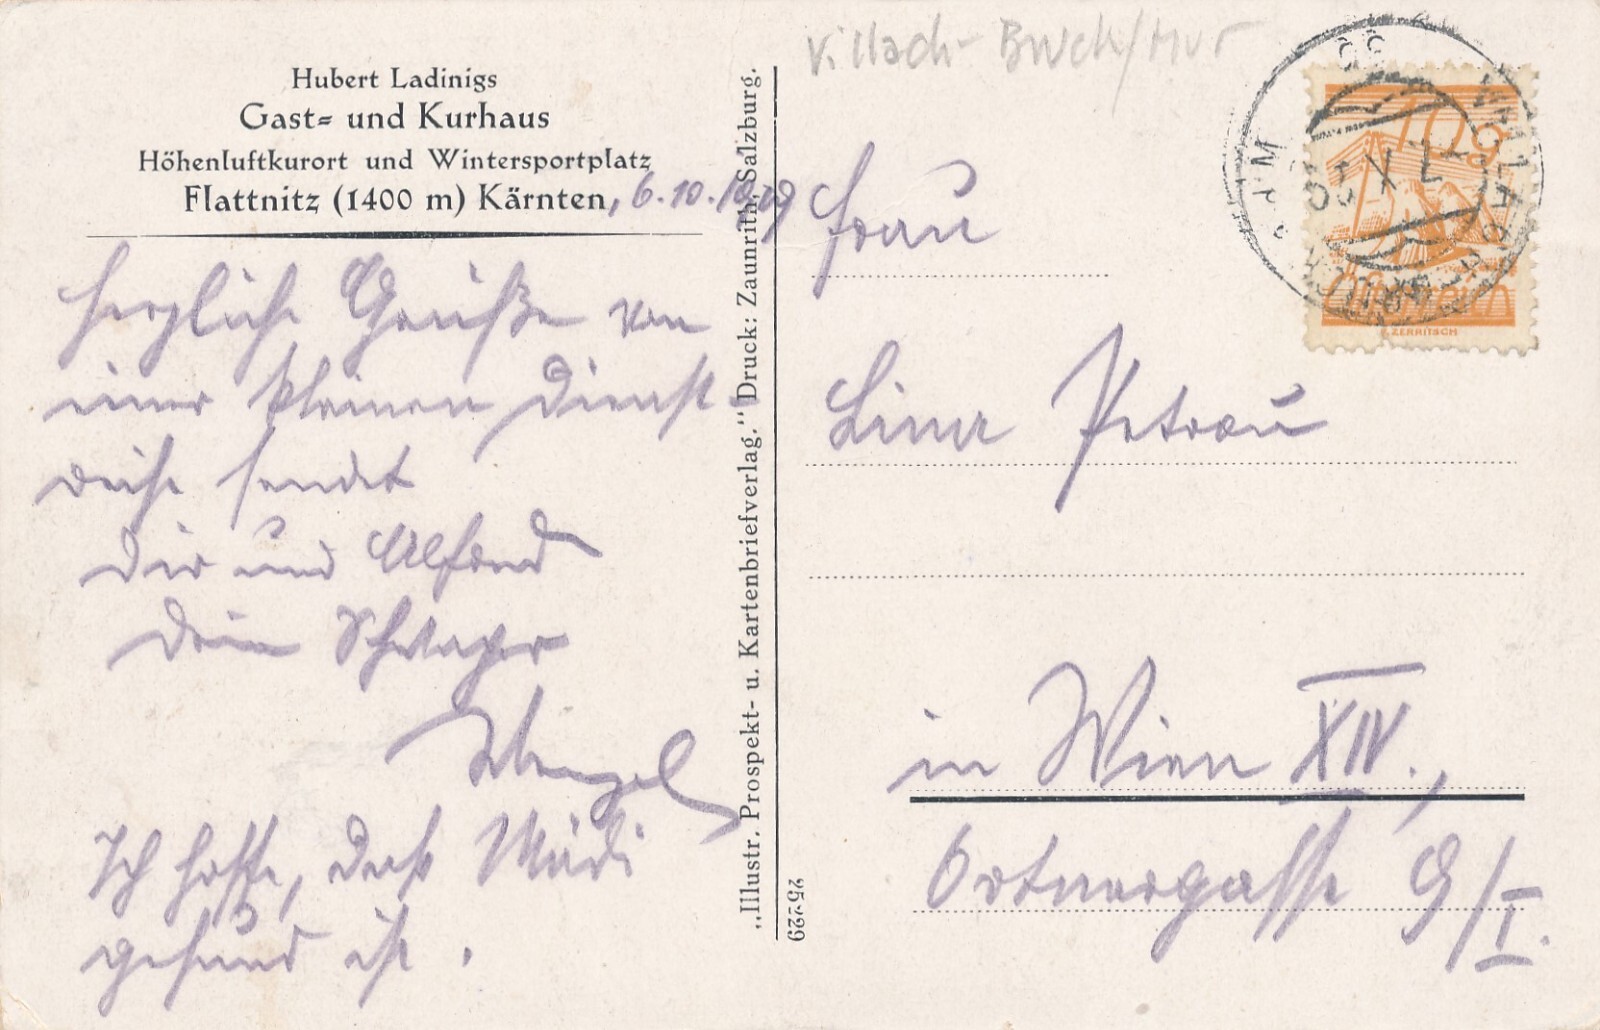 Villach - Bruck/Mur
Hubert Ladinigs
Gast= und Kurhaus
Höhenluftkurort und Wintersportplatz
Flattnitz (1400 m) Kärnten, 6.10.
Herzliche Grüße von
einer kleinen Dienst-
reise sendet
Dir und Alfred
Dein Schwager
Ich hoffe, daß Mädi
gesund ist.
„Illustr. Prospekt- u. Kartenbriefverlag.“ Druck: Zaunrith, Salzburg.
25229
Frau
Petrau
in Wien XIV.,
Ortnergasse 9/I.
10 g
VILLACH
ZERRITSCH